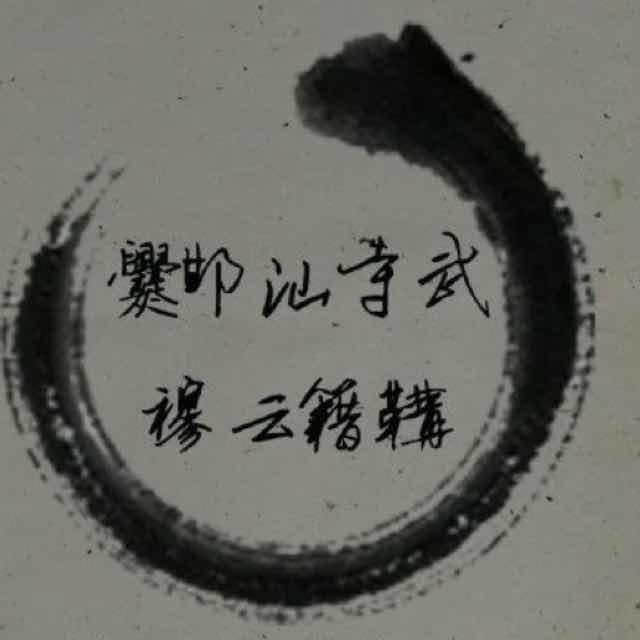 爨邯汕寺武
穆云籍鞲